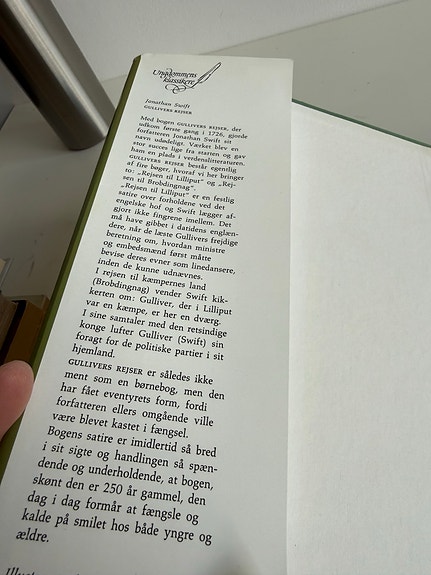 Ungdommens
klassikere
Jonathan Swift
GULLIVERS REJSER
Med bogen GULLIVERS REJSER, der
udkom første gang i 1726, gjorde
forfatteren Jonathan Swift sit
navn udødeligt. Værket blev en
stor succes lige fra starten og gav
ham en plads i verdenslitteraturen.
GULLIVERS REJSER består egentlig
af fire bøger, hvoraf vi her bringer
to: „Rejsen til Lilliput" og „Rej-
sen til Brobdingnag".
„Rejsen til Lilliput" er en festlig
satire over forholdene ved det
engelske hof og Swift lægger af-
gjort ikke fingrene imellem. Det
må have gibbet i datidens englæn-
dere, når de læste Gullivers frejdige
beretning om, hvordan ministre
og embedsmænd først måtte
bevise deres evner som linedansere,
inden de kunne udnævnes.
I rejsen til kæmpernes land
(Brobdingnag) vender Swift kik-
kerten om: Gulliver, der i Lilliput
var en kæmpe, er her en dværg.
I sine samtaler med den retsindige
konge lufter Gulliver (Swift) sin
foragt for de politiske partier i sit
hjemland.
GULLIVERS REJSER er således ikke
ment som en børnebog, men den
har fået eventyrets form, fordi
forfatteren ellers omgående ville
være blevet kastet i fængsel.
Bogens satire er imidlertid så bred
i sit sigte og handlingen så spæn-
dende og underholdende, at bogen,
skønt den er 250 år gammel, den
dag i dag formår at fængsle og
kalde på smilet hos både yngre og
ældre.